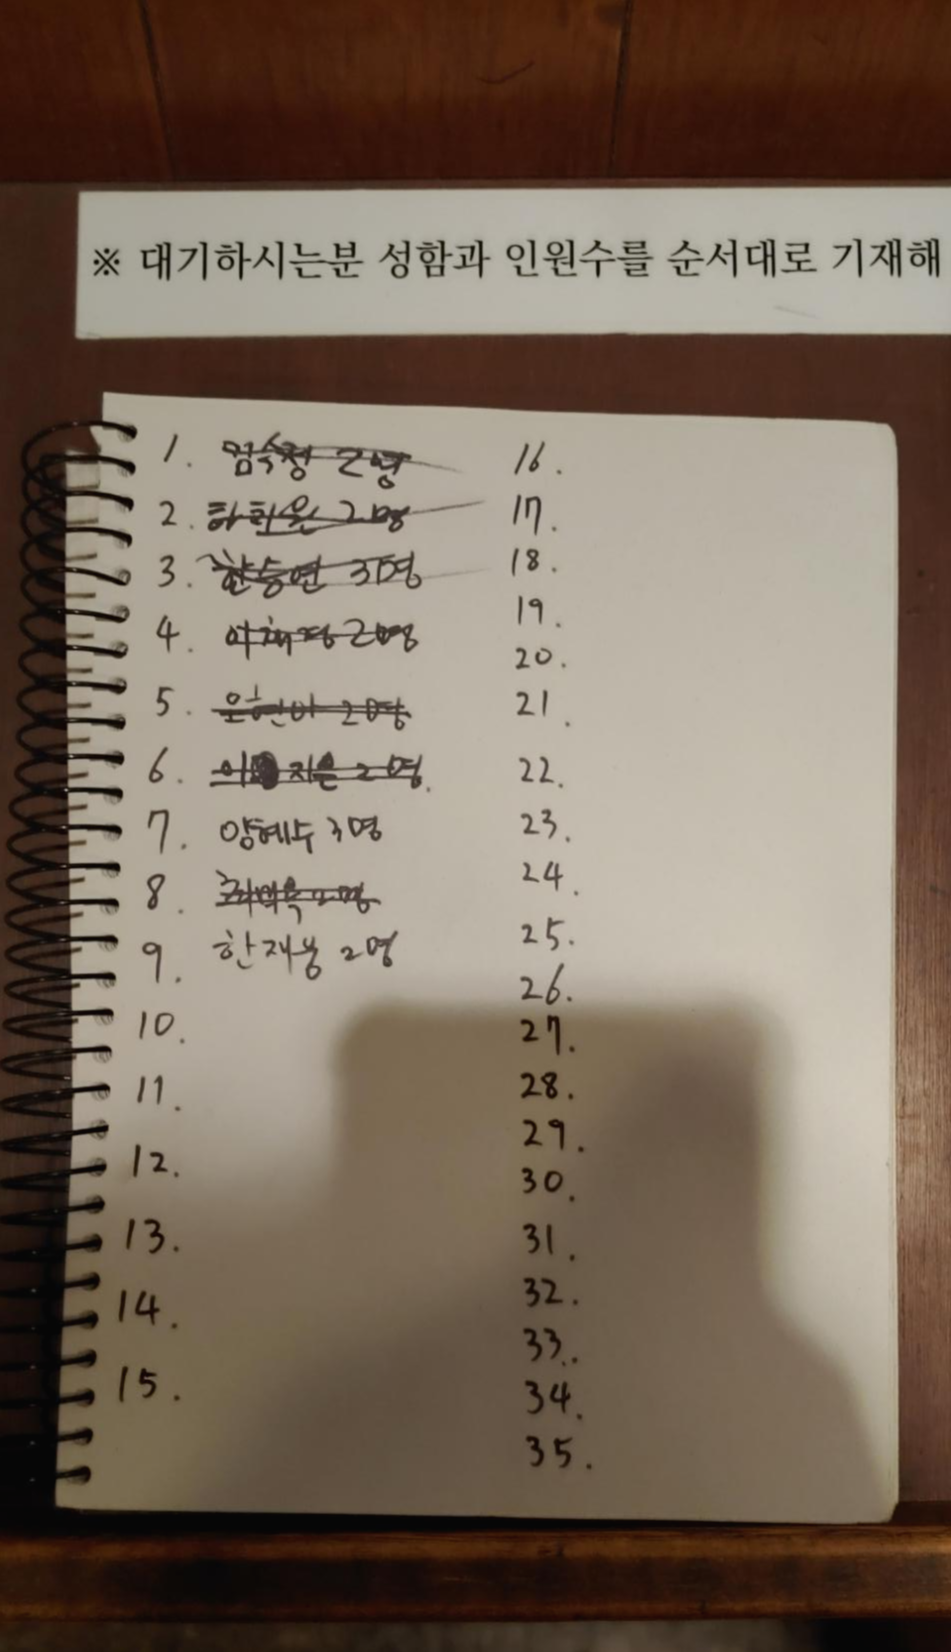 ※ 대기하시는분 성함과 인원수를 순서대로 기재해
1. 엄수정 2명
2. 2명
3. 한승연 3명
4. 이채정 2명
5. 오현아 2명
6. 이 지은 2명
7. 양혜수 3명
8. 2명
9. 한재웅 2명
10.
11.
12.
13.
14.
15.
16.
17.
18.
19.
20.
21.
22.
23.
24.
25.
26.
27.
28.
29.
30.
31.
32.
33.
34.
35.